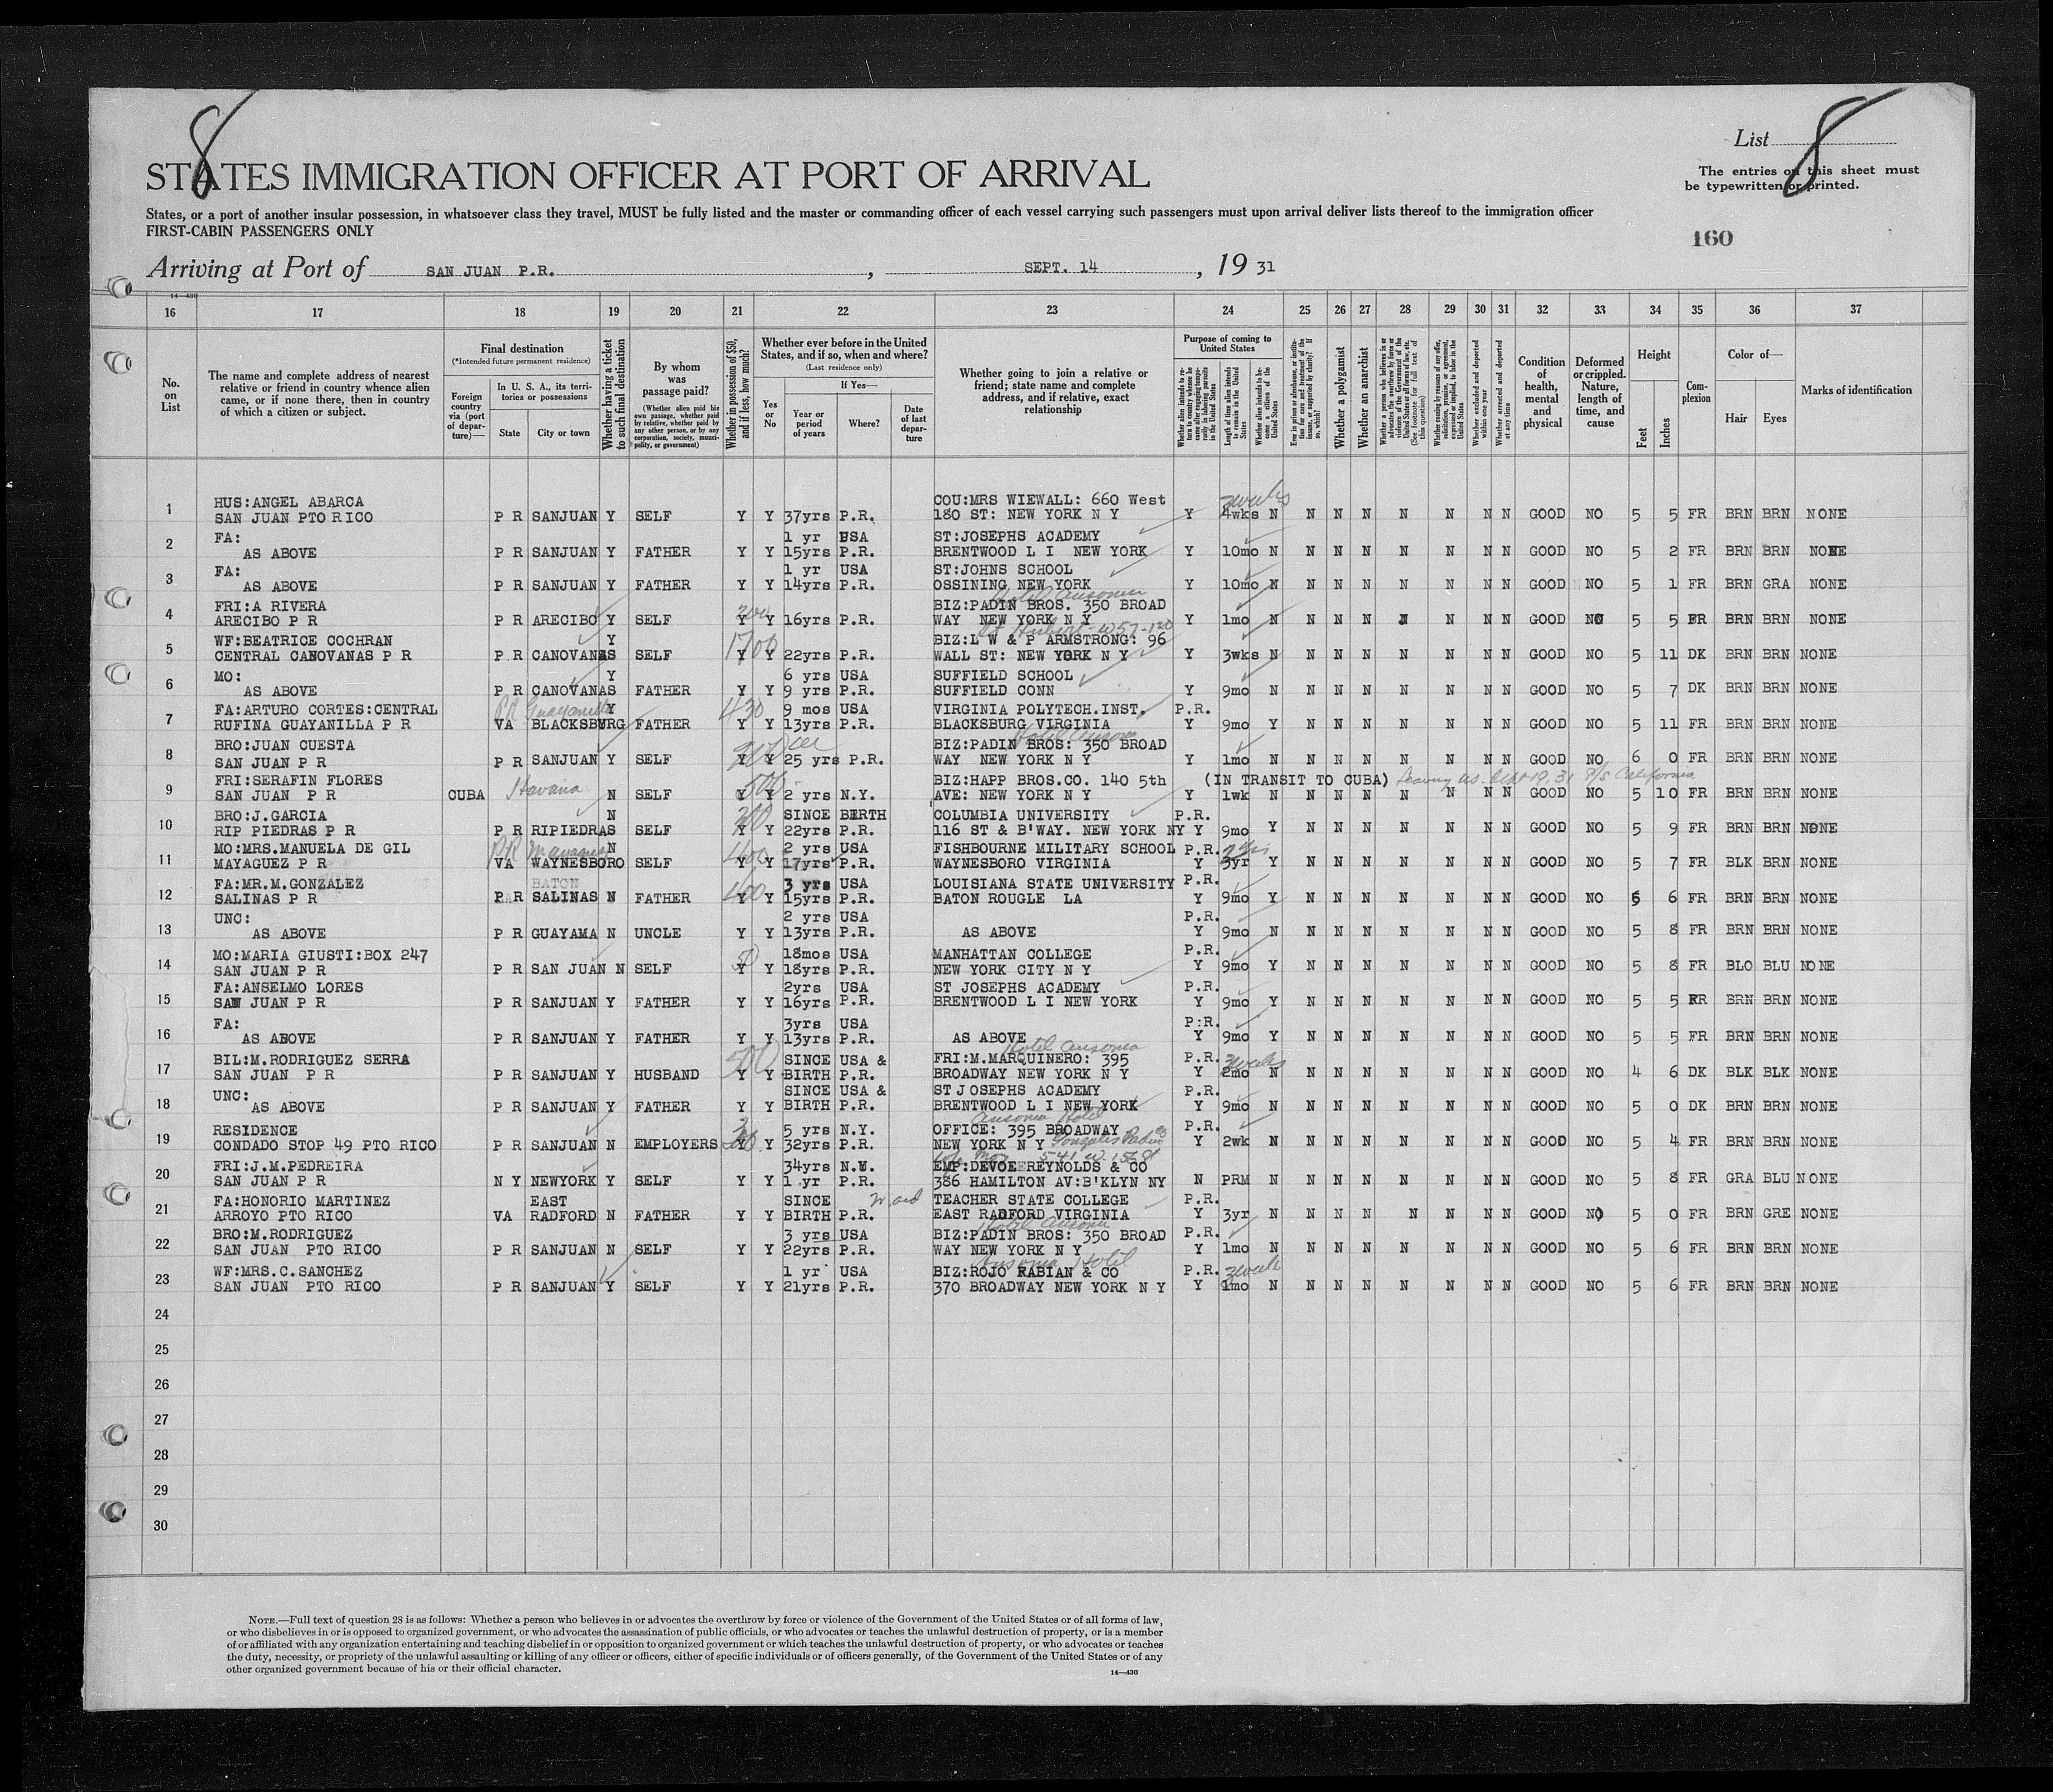 8
List 8
STATES IMMIGRATION OFFICER AT PORT OF ARRIVAL
The entries on this sheet must
be typewritten or printed.
States, or a port of another insular possession, in whatsoever class they travel, MUST be fully listed and the master or commanding officer of each vessel carrying such passengers must upon arrival deliver lists thereof to the immigration officer
FIRST-CABIN PASSENGERS ONLY
160
Arriving at Port of SAN JUAN P.R. , SEPT. 14 , 19 31
14—430
16 17 18 19 20 21 22 23 24 25 26 27 28 29 30 31 32 33 34 35 36 37
No. on List
The name and complete address of nearest relative or friend in country whence alien came, or if none there, then in country of which a citizen or subject.
Final destination
(*Intended future permanent residence)
Foreign country via (port of departure)—
In U. S. A., its territories or possessions
State City or town
Whether having a ticket to such final destination
By whom was passage paid?
(Whether alien paid his own passage, whether paid by relative, whether paid by any other person, or by any corporation, society, municipality, or government)
Whether in possession of $50, and if less, how much?
Whether ever before in the United States, and if so, when and where?
(Last residence only)
Yes or No
If Yes—
Year or period of years
Where?
Date of last departure
Whether going to join a relative or friend; state name and complete address, and if relative, exact relationship
Purpose of coming to United States
Length of time alien intends to remain in the United States
Whether alien intends to become a citizen of the United States
Whether a polygamist
Whether an anarchist
Whether excluded and deported within one year
Whether arrested and deported at any time
Condition of health, mental and physical
Deformed or crippled. Nature, length of time, and cause
Height
Feet Inches
Complexion
Color of—
Hair Eyes
Marks of identification
HUS:ANGEL ABARCA COU:MRS WIEWALL: 660 West
1 SAN JUAN PTO RICO P R SANJUAN Y SELF Y Y 37yrs P.R. 180 ST: NEW YORK N Y Y 4wks N N N N N N N N GOOD NO 5 5 FR BRN BRN NONE
FA: 1 yr USA ST:JOSEPHS ACADEMY
2 AS ABOVE P R SANJUAN Y FATHER Y Y 15yrs P.R. BRENTWOOD L I NEW YORK Y 10mo N N N N N N N N GOOD NO 5 2 FR BRN BRN NONE
FA: 1 yr USA ST:JOHNS SCHOOL
3 AS ABOVE P R SANJUAN Y FATHER Y Y 14yrs P.R. OSSINING NEW YORK Y 10mo N N N N N N N N GOOD NO 5 1 FR BRN GRA NONE
Hotel Ausonia
FRI:A RIVERA BIZ:PADIN BROS. 350 BROAD
4 ARECIBO P R P R ARECIBO Y SELF Y Y 16yrs P.R. WAY NEW YORK N Y Y 1mo N N N N N N N N GOOD NO 5 5 FR BRN BRN NONE
WF:BEATRICE COCHRAN Y 1700 BIZ:L W & P ARMSTRONG: 96
5 CENTRAL CANOVANAS P R P R CANOVANAS SELF Y Y 22yrs P.R. WALL ST: NEW YORK N Y Y 3wks N N N N N N N N GOOD NO 5 11 DK BRN BRN NONE
MO: Y 6 yrs USA SUFFIELD SCHOOL
6 AS ABOVE P R CANOVANAS FATHER Y Y 9 yrs P.R. SUFFIELD CONN Y 9mo N N N N N N N N GOOD NO 5 7 DK BRN BRN NONE
FA:ARTURO CORTES:CENTRAL PR Guayanilla Y 430 9 mos USA VIRGINIA POLYTECH.INST. P.R.
7 RUFINA GUAYANILLA P R VA BLACKSBURG FATHER Y Y 13yrs P.R. BLACKSBURG VIRGINIA Y 9mo Y N N N N N N N GOOD NO 5 11 FR BRN BRN NONE
Hotel Ausonia
BRO:JUAN CUESTA BIZ:PADIN BROS: 350 BROAD
8 SAN JUAN P R P R SANJUAN Y SELF Y Y 25 yrs P.R. WAY NEW YORK N Y Y 1mo N N N N N N N N GOOD NO 6 0 FR BRN BRN NONE
FRI:SERAFIN FLORES Havana 500 BIZ:HAPP BROS.CO. 140 5th (IN TRANSIT TO CUBA) S/S California
9 SAN JUAN P R CUBA N SELF Y Y 2 yrs N.Y. AVE: NEW YORK N Y Y 1wk N N N N N N N N GOOD NO 5 10 FR BRN BRN NONE
BRO:J.GARCIA N SINCE BIRTH COLUMBIA UNIVERSITY P.R.
10 RIP PIEDRAS P R P R RIPIEDRAS SELF Y Y 22yrs P.R. 116 ST & B'WAY. NEW YORK NY Y 9mo Y N N N N N N N GOOD NO 5 9 FR BRN BRN NONE
MO:MRS.MANUELA DE GIL PR Mayaguez N 400 2 yrs USA FISHBOURNE MILITARY SCHOOL P.R.
11 MAYAGUEZ P R VA WAYNESBORO SELF Y Y 17yrs P.R. WAYNESBORO VIRGINIA Y 3yr Y N N N N N N N GOOD NO 5 7 FR BLK BRN NONE
FA:MR.M.GONZALEZ BATON 400 3 yrs USA LOUISIANA STATE UNIVERSITY P.R.
12 SALINAS P R P R SALINAS N FATHER Y Y 15yrs P.R. BATON ROUGLE LA Y 9mo Y N N N N N N N GOOD NO 5 6 FR BRN BRN NONE
UNC: 2 yrs USA P.R.
13 AS ABOVE P R GUAYAMA N UNCLE Y Y 13yrs P.R. AS ABOVE Y 9mo N N N N N N N N GOOD NO 5 8 FR BRN BRN NONE
MO:MARIA GIUSTI:BOX 247 18mos USA MANHATTAN COLLEGE P.R.
14 SAN JUAN P R P R SAN JUAN N SELF Y Y 18yrs P.R. NEW YORK CITY N Y Y 9mo Y N N N N N N N GOOD NO 5 8 FR BLO BLU NONE
FA:ANSELMO LORES 2yrs USA ST JOSEPHS ACADEMY P.R.
15 SAN JUAN P R P R SANJUAN Y FATHER Y Y 16yrs P.R. BRENTWOOD L I NEW YORK Y 9mo Y N N N N N N N GOOD NO 5 5 FR BRN BRN NONE
FA: 3yrs USA P:R.
16 AS ABOVE P R SANJUAN Y FATHER Y Y 13yrs P.R. AS ABOVE Y 9mo Y N N N N N N N GOOD NO 5 5 FR BRN BRN NONE
Hotel Ausonia
BIL:M.RODRIGUEZ SERRA 500 SINCE USA & FRI:M.MARQUINERO: 395 P.R.
17 SAN JUAN P R P R SANJUAN Y HUSBAND Y Y BIRTH P.R. BROADWAY NEW YORK N Y Y 2mo N N N N N N N N GOOD NO 4 6 DK BLK BLK NONE
UNC: SINCE USA & ST JOSEPHS ACADEMY P.R.
18 AS ABOVE P R SANJUAN Y FATHER Y Y BIRTH P.R. BRENTWOOD L I NEW YORK Y 9mo N N N N N N N N GOOD NO 5 0 DK BRN BRN NONE
Ausonia Hotel
RESIDENCE 5 yrs N.Y. OFFICE: 395 BROADWAY P.R.
19 CONDADO STOP 49 PTO RICO P R SANJUAN N EMPLOYERS Y Y 32yrs P.R. NEW YORK N Y Gonzales Padin Y 2wk N N N N N N N N GOOD NO 5 4 FR BRN BRN NONE
FRI:J.M.PEDREIRA 34yrs N.Y. EMP:DEVOE REYNOLDS & CO
20 SAN JUAN P R N Y NEWYORK Y SELF Y Y 1 yr P.R. 386 HAMILTON AV:B'KLYN NY N PRM N N N N N N N N GOOD NO 5 8 FR GRA BLU NONE
FA:HONORIO MARTINEZ EAST SINCE TEACHER STATE COLLEGE P.R.
21 ARROYO PTO RICO VA RADFORD N FATHER Y Y BIRTH P.R. EAST RADFORD VIRGINIA Y 3yr N N N N N N N N GOOD NO 5 0 FR BRN GRE NONE
Hotel Ausonia
BRO:M.RODRIGUEZ 3 yrs USA BIZ:PADIN BROS: 350 BROAD P.R.
22 SAN JUAN PTO RICO P R SANJUAN N SELF Y Y 22yrs P.R. WAY NEW YORK N Y Y 1mo N N N N N N N N GOOD NO 5 6 FR BRN BRN NONE
Ausonia Hotel
WF:MRS.C.SANCHEZ 1 yr USA BIZ:ROJO FABIAN & CO P.R.
23 SAN JUAN PTO RICO P R SANJUAN Y SELF Y Y 21yrs P.R. 370 BROADWAY NEW YORK N Y Y 1mo N N N N N N N N GOOD NO 5 6 FR BRN BRN NONE
24
25
26
27
28
29
30
NOTE.—Full text of question 28 is as follows: Whether a person who believes in or advocates the overthrow by force or violence of the Government of the United States or of all forms of law,
or who disbelieves in or is opposed to organized government, or who advocates the assassination of public officials, or who advocates or teaches the unlawful destruction of property, or is a member
of or affiliated with any organization entertaining and teaching disbelief in or opposition to organized government or which teaches the unlawful destruction of property, or who advocates or teaches
the duty, necessity, or propriety of the unlawful assaulting or killing of any officer or officers, either of specific individuals or of officers generally, of the Government of the United States or of any
other organized government because of his or their official character.
14—430